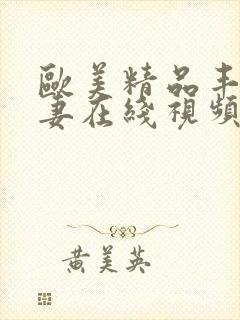 歐美精品丰
妻在綫視頻
黃美英